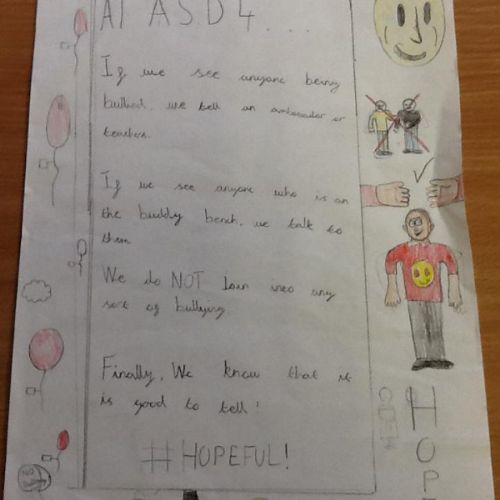 At ASD4...
If we see anyone being
bullied, we tell an ambassador or
teachers.
If we see anyone who is on
the buddy bench, we talk to
them
We do NOT Join into any
sort of bullying
Finally, We know that it
is good to tell!
#HOPEFUL!
HOP